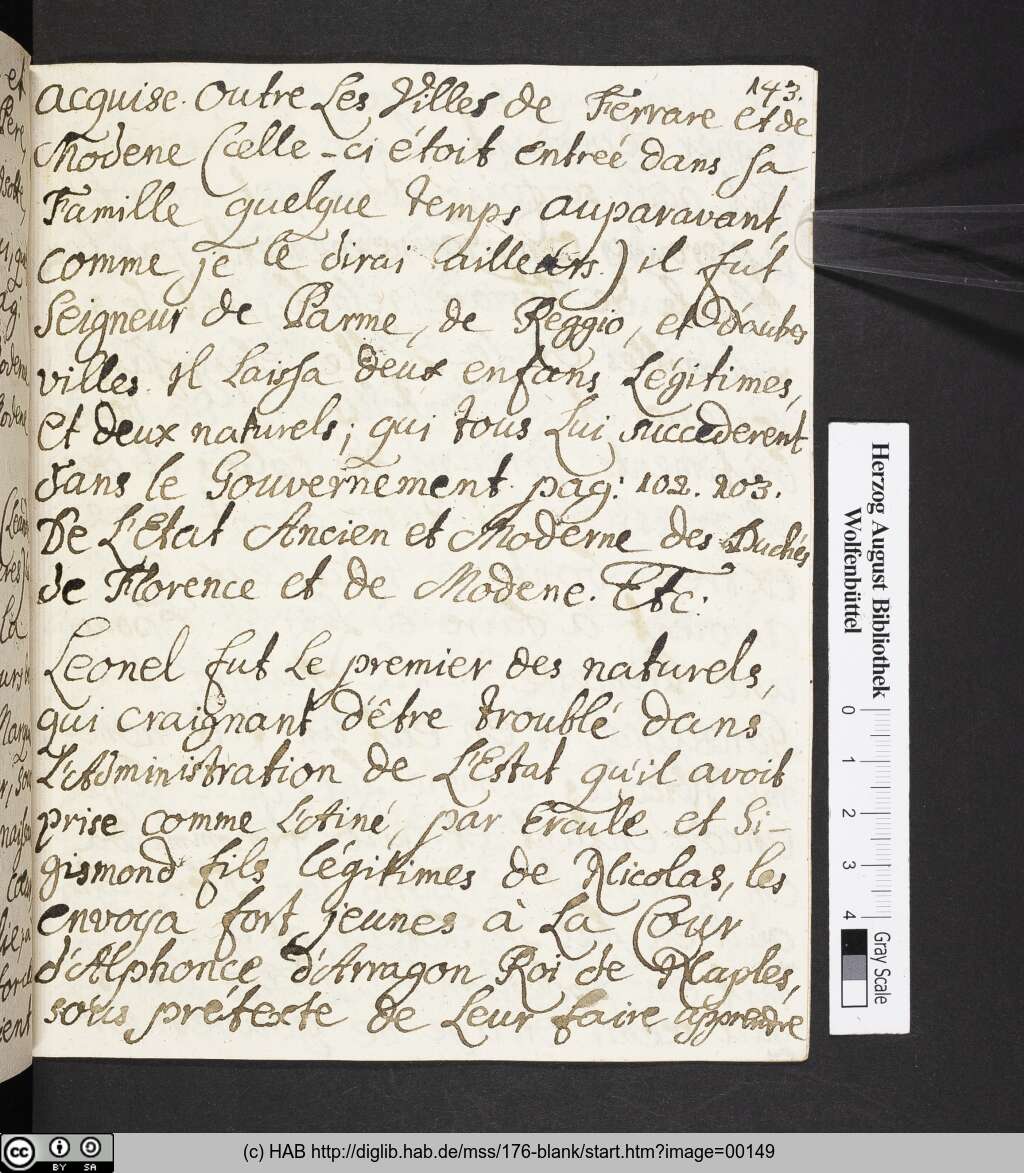 143.
acquise. Outre Les Villes de Ferrare et de
Modene (celle-ci étoit entreé dans sa
Famille quelque temps auparavant,
comme je le dirai ailleurs.) il fut
Seigneur de Parme, de Reggio, et d'autres
villes. Il Laissa deux enfans Légitimes,
et deux naturels; qui tous Lui succederent
dans le Gouvernement. pag: 102. 103.
De L'Etat Ancien et Moderne des Duchés
de Florence et de Modene. Etc:
Leonel fut Le premier des naturels,
qui craignant d'être troublé dans
L'Administration de L'Estat qu'il avoit
prise comme L'Ainé, par Ercule et Si-
gismond fils légitimes de Nicolas, les
envoya fort jeunes à La Cour
d'Alphonce d'Arragon Roi de Naples,
sous prétexte de Leur faire apprendre
Herzog August Bibliothek
Wolfenbüttel
0 1 2 3 4
Gray Scale
cc BY SA
(c) HAB http://diglib.hab.de/mss/176-blank/start.htm?image=00149